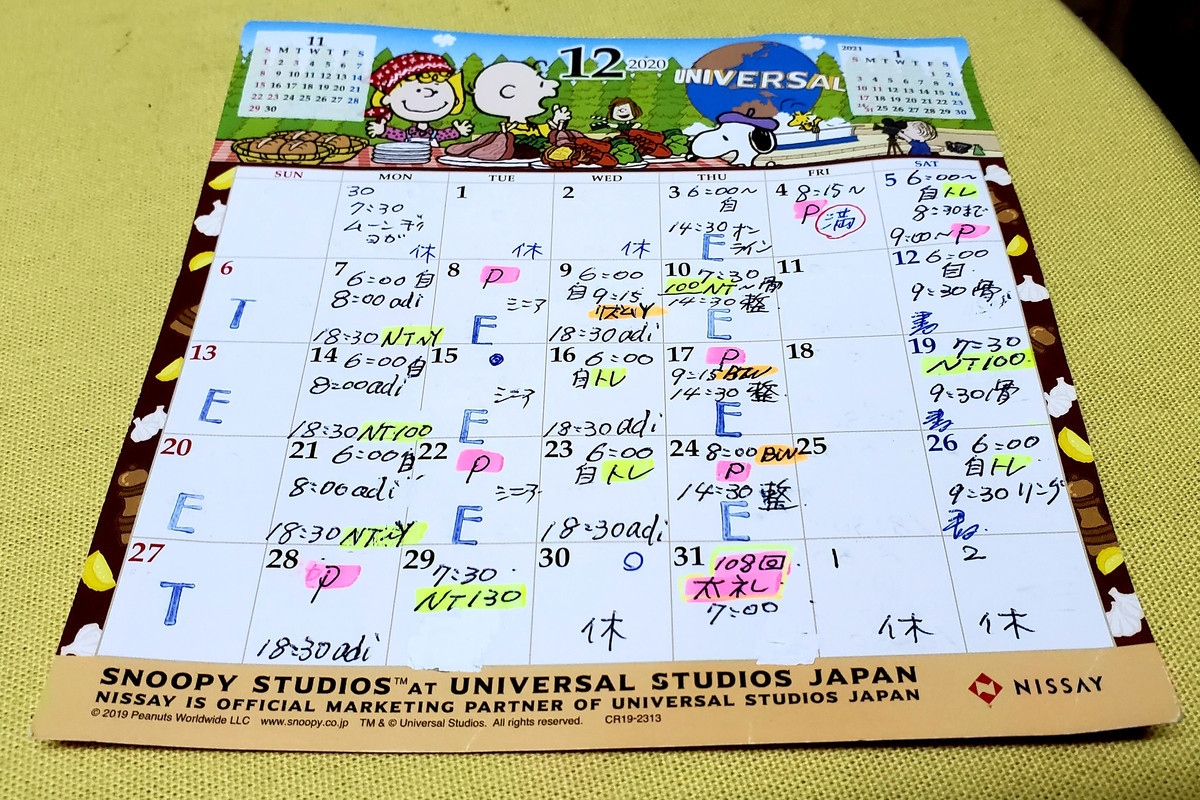 11
S M T W T F S
1 2 3 4 5 6 7
8 9 10 11 12 13 14
15 16 17 18 19 20 21
22 23 24 25 26 27 28
29 30
12 2020
UNIVERSAL
2021 1
S M T W T F S
1 2
3 4 5 6 7 8 9
10 11 12 13 14 15 16
17 18 19 20 21 22 23
24 25 26 27 28 29 30
31
SUN MON TUE WED THU FRI SAT
30
7:30
ムーンデイ
ヨガ
休
1
休
2
休
3 6:00~
自
14:30 オン
ライン
E
4 8:15~
P 満
5 6:00~
自トレ
8:30まで
9:00~P
6
T
7
6:00 自
8:00 adi
18:30 NTNY
8 P
シニア
E
9 6:00
自 9:15
リズムY
18:30 adi
10 7:30
100NT~骨
14:30 整
E
11
12 6:00
自
9:30 骨
13
E
14 6:00 自
8:00 adi
18:30 NT100
15
シニア
E
16 6:00
自トレ
18:30 adi
17 P
9:15 BIN
14:30 整
E
18
19 7:30
NT100
9:30 骨
20
E
21 6:00 自
8:00 adi
18:30 NTNY
22 P
シニア
E
23 6:00
自トレ
18:30 adi
24 8:00 BIN
P
14:30 整
E
25
26 6:00
自トレ
9:30 リング
27
T
28
P
18:30 adi
29 7:30
NT130
30
休
31 108回
太礼
7:00
1
休
2
休
SNOOPY STUDIOS™ AT UNIVERSAL STUDIOS JAPAN
NISSAY IS OFFICIAL MARKETING PARTNER OF UNIVERSAL STUDIOS JAPAN
© 2019 Peanuts Worldwide LLC www.snoopy.co.jp TM & © Universal Studios. All rights reserved. CR19-2313
NISSAY